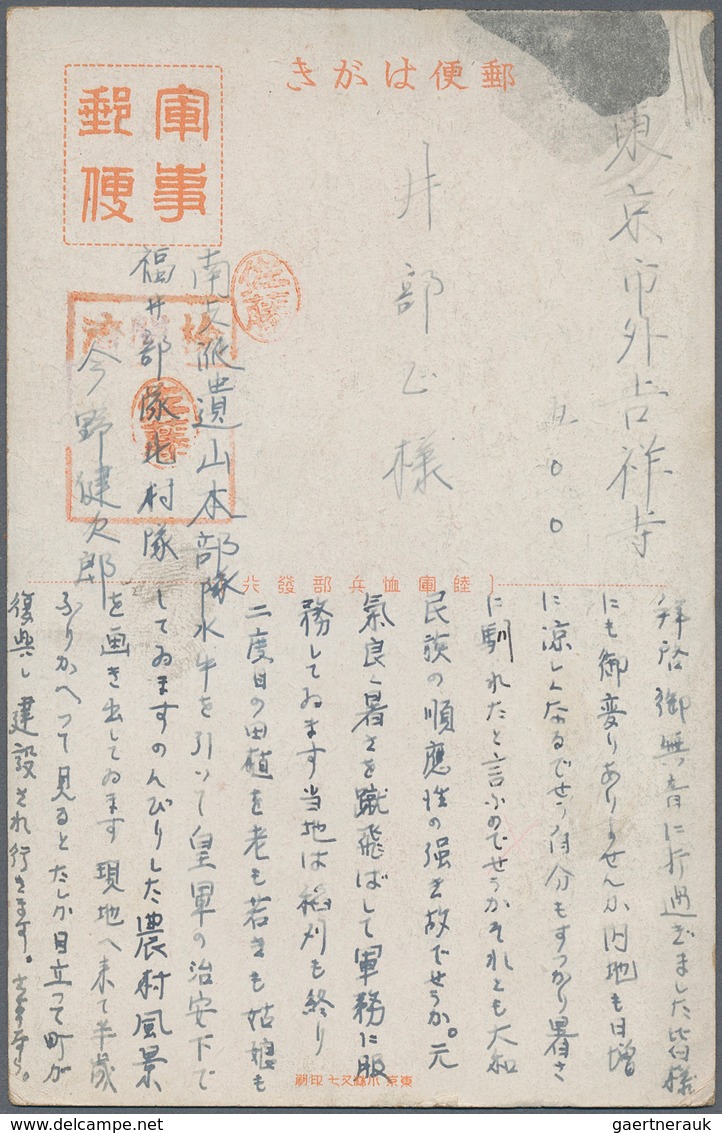 郵便はがき
軍事
郵便
東京市外吉祥寺
五〇〇
井部乙様
南支派遣山本部隊
福井部隊 村隊
今野健次郎
検閲済
佐藤
佐藤
陸軍恤兵部發行
拝啓御無音に打過ぎました皆様
にも御変りありませんか内地も日増
に涼しくなるでせう自分もすつかり暑さ
に馴れたと言ふのでせうかそれとも大和
民族の順應性の强き故でせうか。元
氣良く暑さを蹴飛ばして軍務に服
務してゐます当地は稲刈も終り
二度目の田植を老も若きも姑娘も
水牛を引いて皇軍の治安下で
してゐますのんびりした農村風景
を画き出してゐます 現地へ来て半歳
ふりかへつて見るとたしか目立つて町が
復興し建設され行きます。
東京 小森又七印刷
gaertnerauk